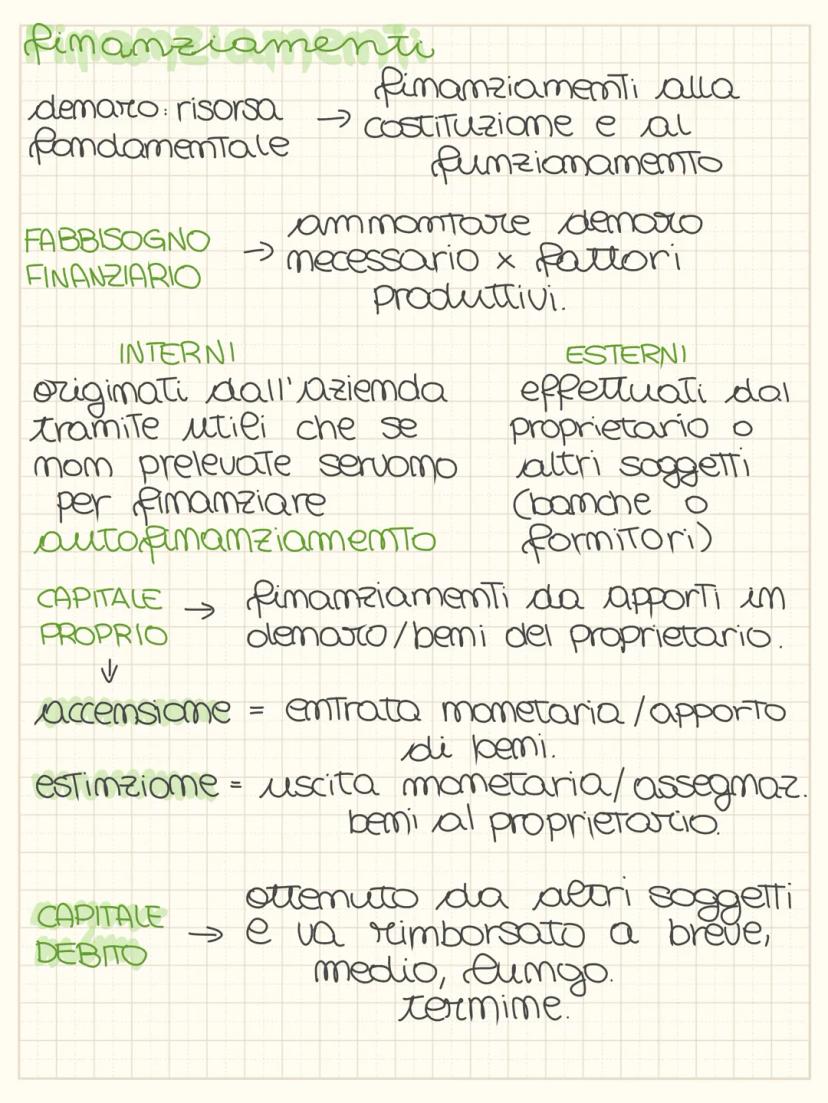 finanziamenti
denaro: risorsa → finanziamenti alla
fondamentale costituzione e al
funzionamento
FABBISOGNO → ammontare denaro
FINANZIARIO necessario x fattori
produttivi.
INTERNI
originati dall'azienda
tramite utili che se
non prelevate servono
per finanziare
autofinanziamento
ESTERNI
effettuati dal
proprietario o
altri soggetti
(banche o
fornitori)
CAPITALE → finanziamenti da apporti in
PROPRIO denaro/beni del proprietario.
↓
accensione = entrata monetaria/apporto
di beni.
estinzione = uscita monetaria/assegnaz.
beni al proprietario.
CAPITALE → ottenuto da altri soggetti
DEBITO e va rimborsato a breve,
medio, lungo.
termine.